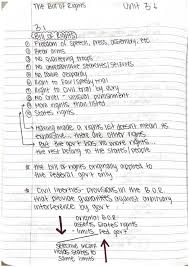 The Bill of Rights Unit 3.1
3.1
Bill of Rights
① Freedom of speech, press, assembly, etc
② Bear arms
③ No quartering troops
④ No unreasonable searches/seizures
⑤ No double jeopardy
⑥ Right to fair/speedy trial
⑦
⑧ No cruel + unusual punishment
⑨ More rights than listed
⑩ States rights
Having made a rights list doesn't mean its
exhaustive - there are other rights
- but the gov't has no more rights
the rest belong to the states/people
* The bill of rights originally applied to
the federal gov't only
* Civil liberties - provisions in the B.O.R
that provide guarantees against arbitrary
interference by gov't
original B.O.R
asserts states rights
- limits fed gov't
selective incorp
holds states to
same limits